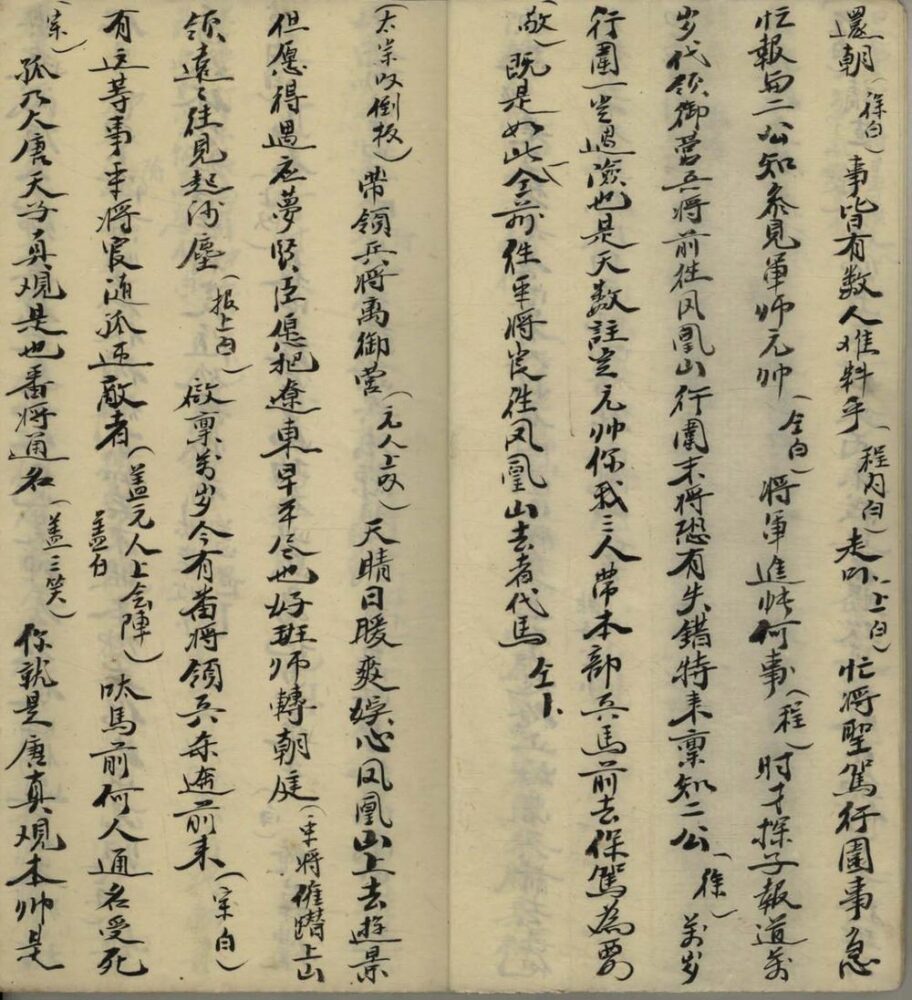 還朝（徐白）事皆有数人难料乎（程内白）走吓（上白）忙将聖駕行圍事急
忙報与二公知参見軍师元帅（仝白）将軍進帐何事（程）时才探子報道万
岁代领御营兵将前往凤凰山行圍末将恐有失錯特来禀知二公（徐）万岁
行圍一定遇險也是天数註定元帅你我三人带本部兵馬前去保駕為要
（敬）既是如此仝前往 将官往凤凰山去者代馬 仝下
（太宗叹倒板）帶領兵将离御营（元人上叹）天晴日暖爽娱心凤凰山上去遊景
但愿得遇应夢賢臣 把遼東早平 也好班师轉朝庭（ 将催躜上山
领遠远往見起沙塵（报上白）啟禀万岁今有番将領兵杀进前来（宗白）
有这等事 将官随孤迎敵者（蓋元人上会陣）（蓋白）呔馬前何人通名受死
（宗）孤乃大唐天子真观是也番将通名（蓋三笑）你就是唐真观本帅是